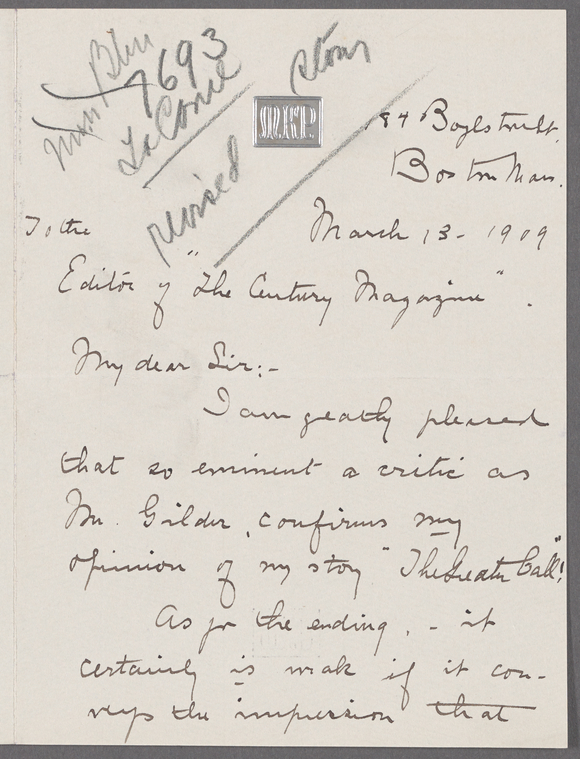 Miss Blue
7693
La Corne
revised
story
MRP
184 Boylston St.
Boston Mass.
To the
March 13 - 1909
Editor of "The Century Magazine".
My dear Sir:-
I am geatly pleased
that so eminent a critic as
Mr. Gilder, confirms my
opinion of my story "The Greater Call"!
As for the ending, - it
certainly is weak if it con-
veys the impression that